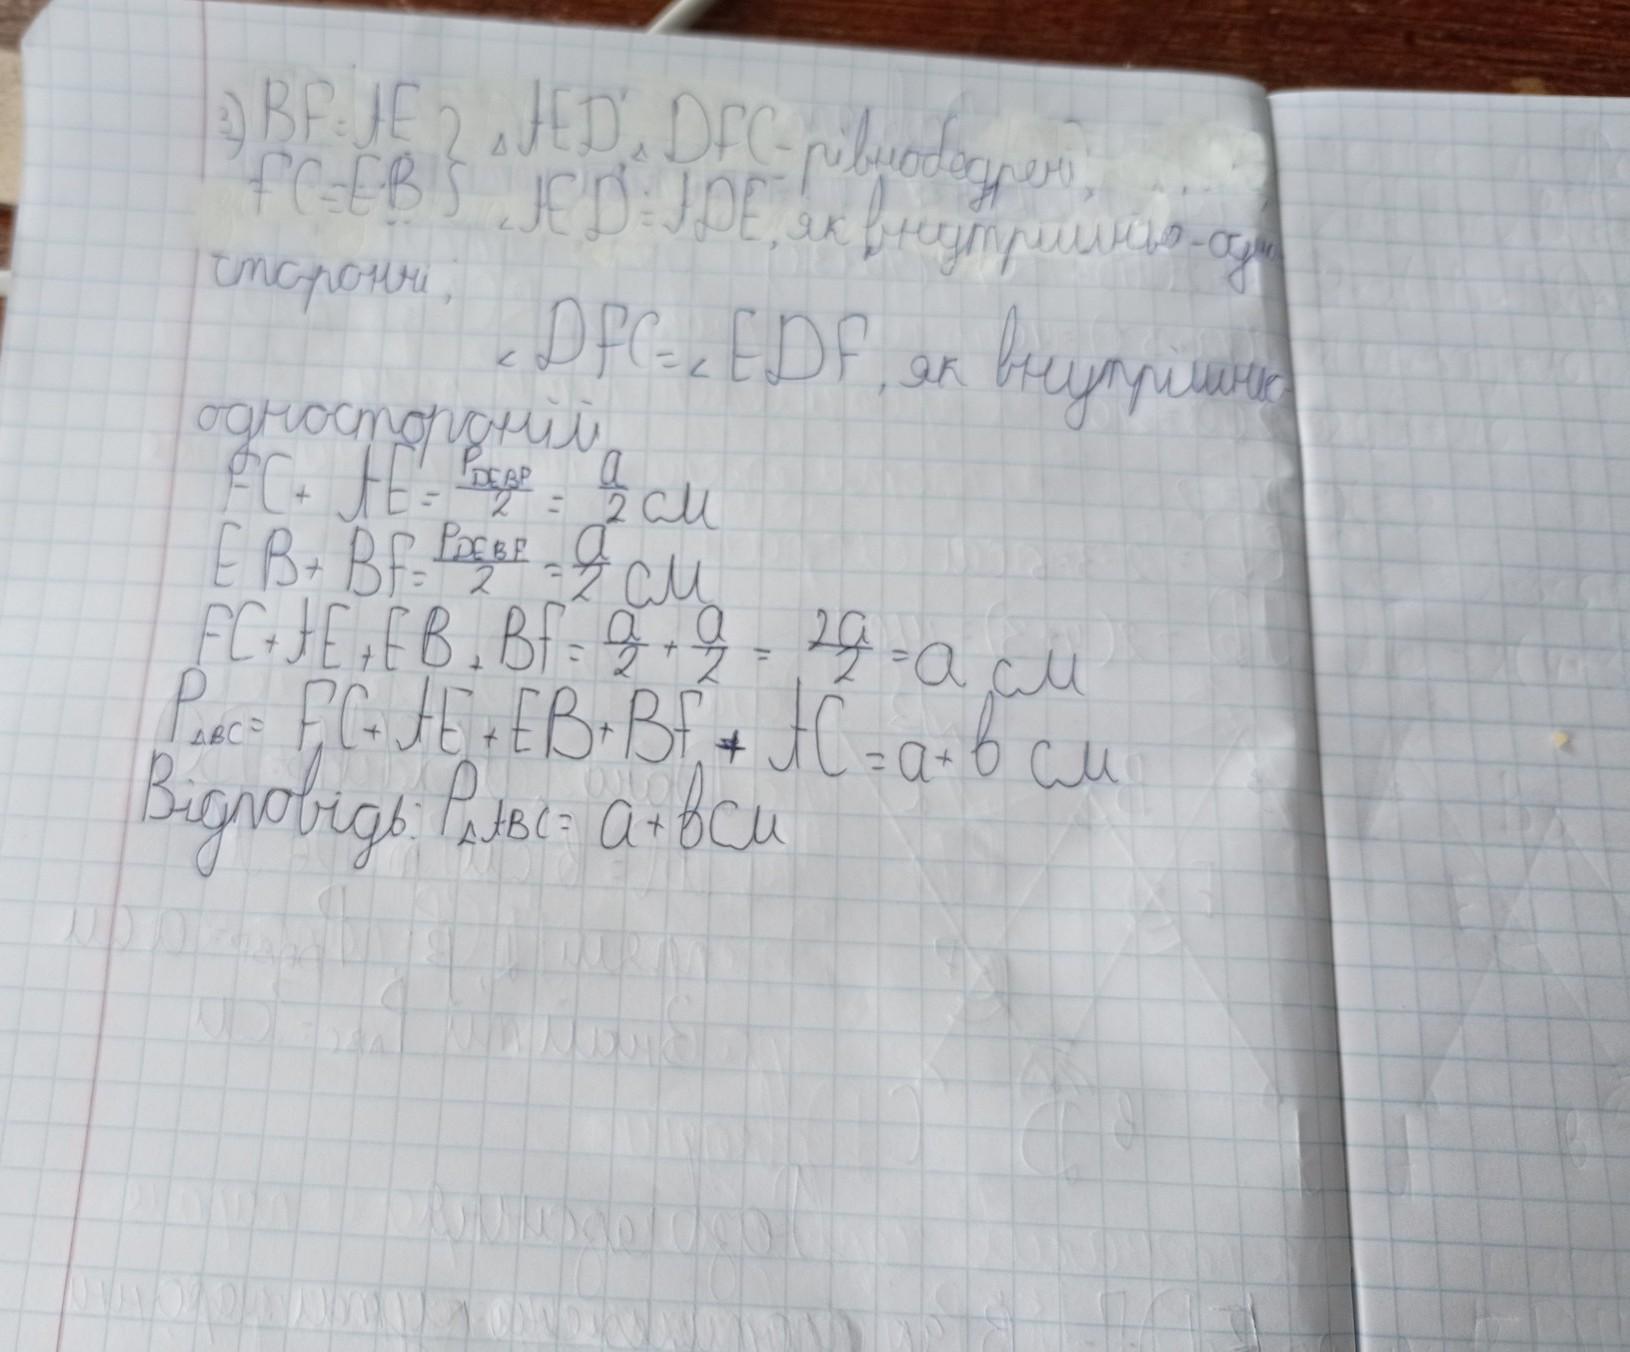 3) BF=AE } △AED, △DFC - рівнобедрені,
FC=EB } ∠AED=ADE, як внутрішньо-одно
сторонні;
∠DFC=∠EDF, як внутрішньо-
односторонній
FC+AE=P_DEBF/2=a/2 см
EB+BF=P_DEBF/2=a/2 см
FC+AE+EB+BF=a/2+a/2=2a/2=a см
P△BC=FC+AE+EB+BF+AC=a+b см
Відповідь: P△ABC=a+b см